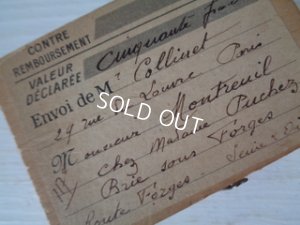 CONTRE
REMBOURSEMENT
VALEUR
DÉCLARÉE
Cinquante
Envoi de M. Collinet
29 rue Louvre Paris
SOLD OUT
Monsieur Montreuil
Chez Madame Puchez
Brie sous Forges
Route Forges